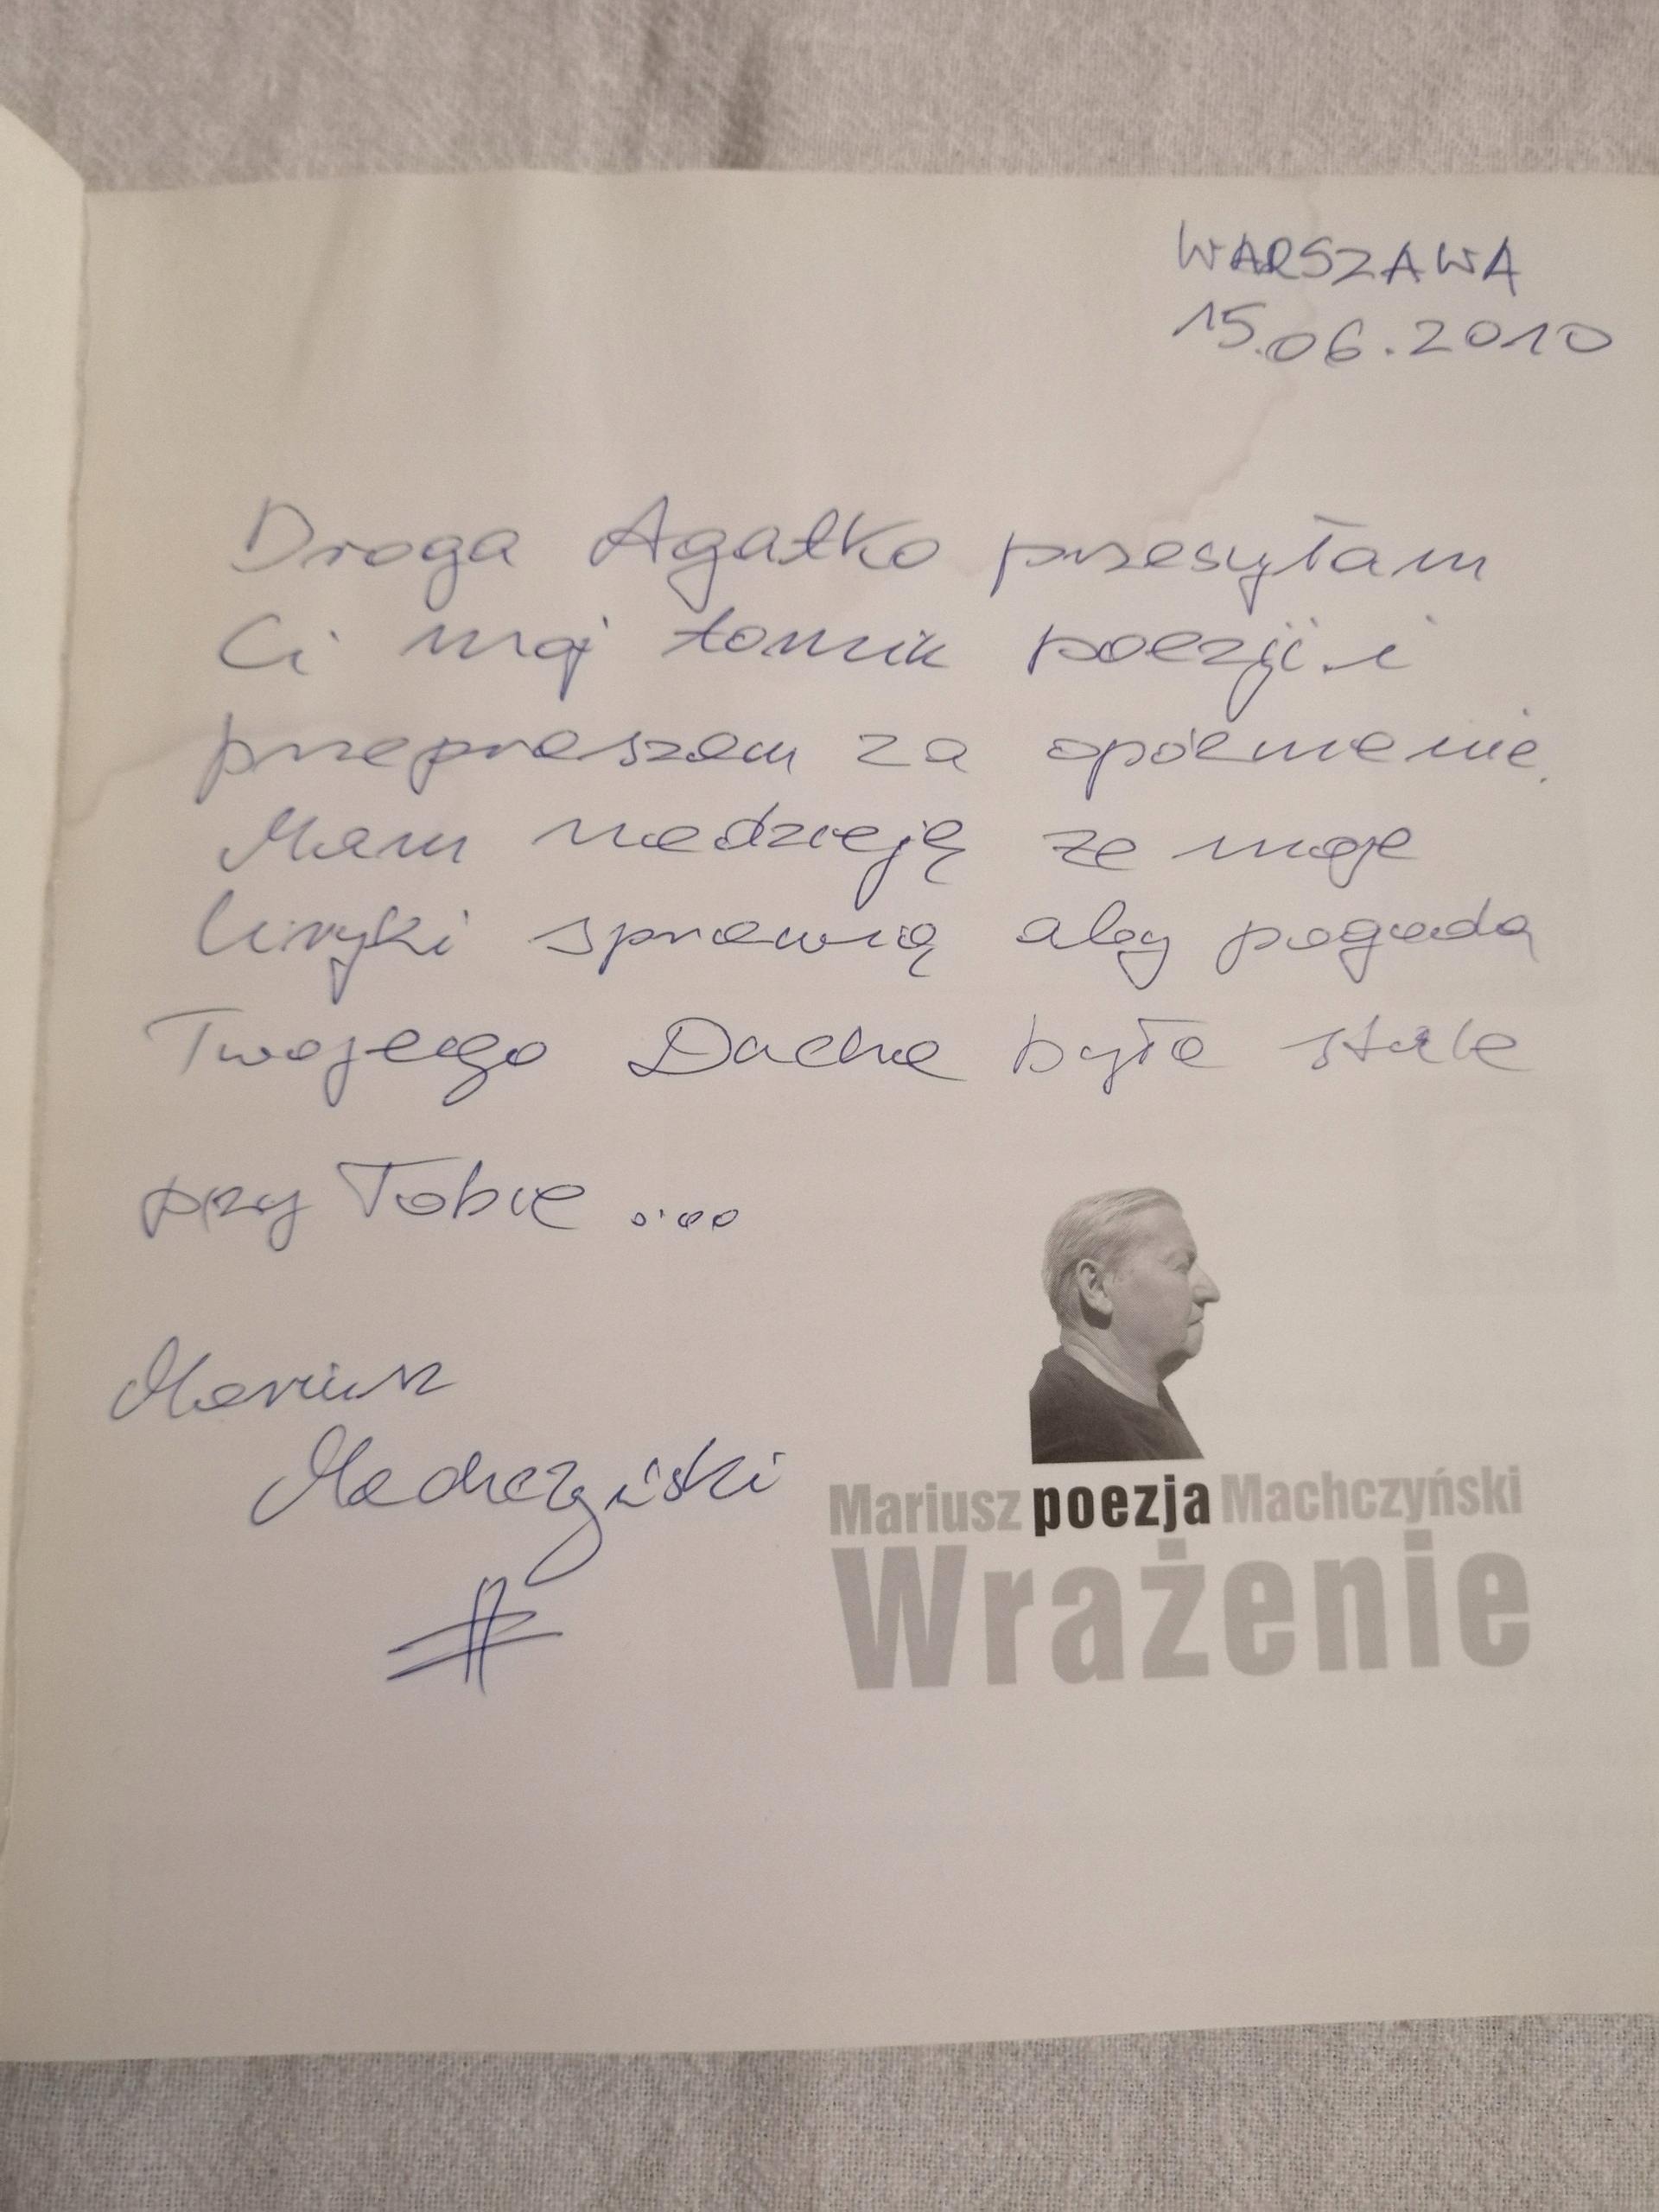 WARSZAWA
15.06.2010
Droga Agatko przesyłam
Ci mój tomik poezji i
przepraszam za opóźnienie.
Mam nadzieję że moje
liryki sprawią aby pogoda
Twojego Ducha była stale
przy Tobie ....
Mariusz
Machczyński
Mariusz poezja Machczyński
Wrażenie